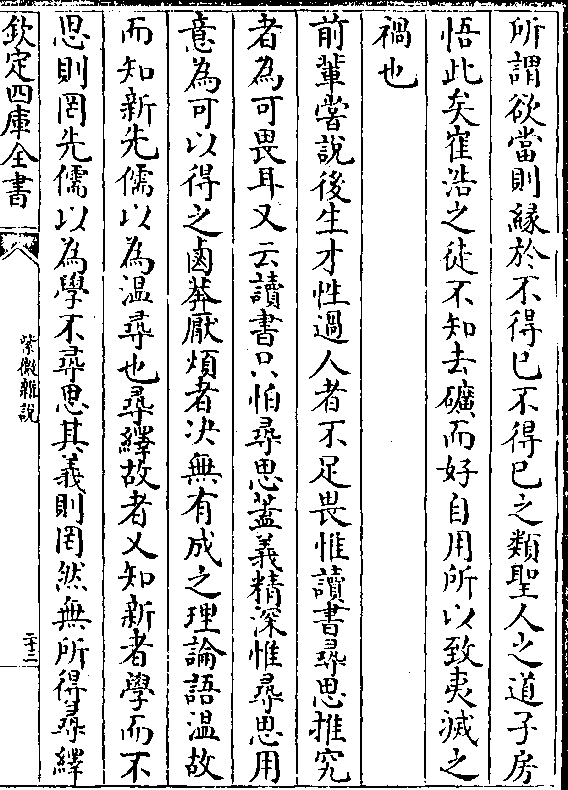 所謂欲當則緣於不得已不得已之類聖人之道子房
悟此矣崔浩之徒不知去礦而好自用所以致夷滅之
禍也
前輩嘗說後生才性過人者不足畏惟讀書尋思推究
者為可畏耳又云讀書只怕尋思蓋義精深惟尋思用
意為可以得之鹵莽厭煩者决無有成之理論語溫故
而知新先儒以為温尋也尋繹故者又知新者學而不
思則罔先儒以為學不尋思其義則罔然無所得尋繹
欽定四庫全書
紫微雜說
二十三